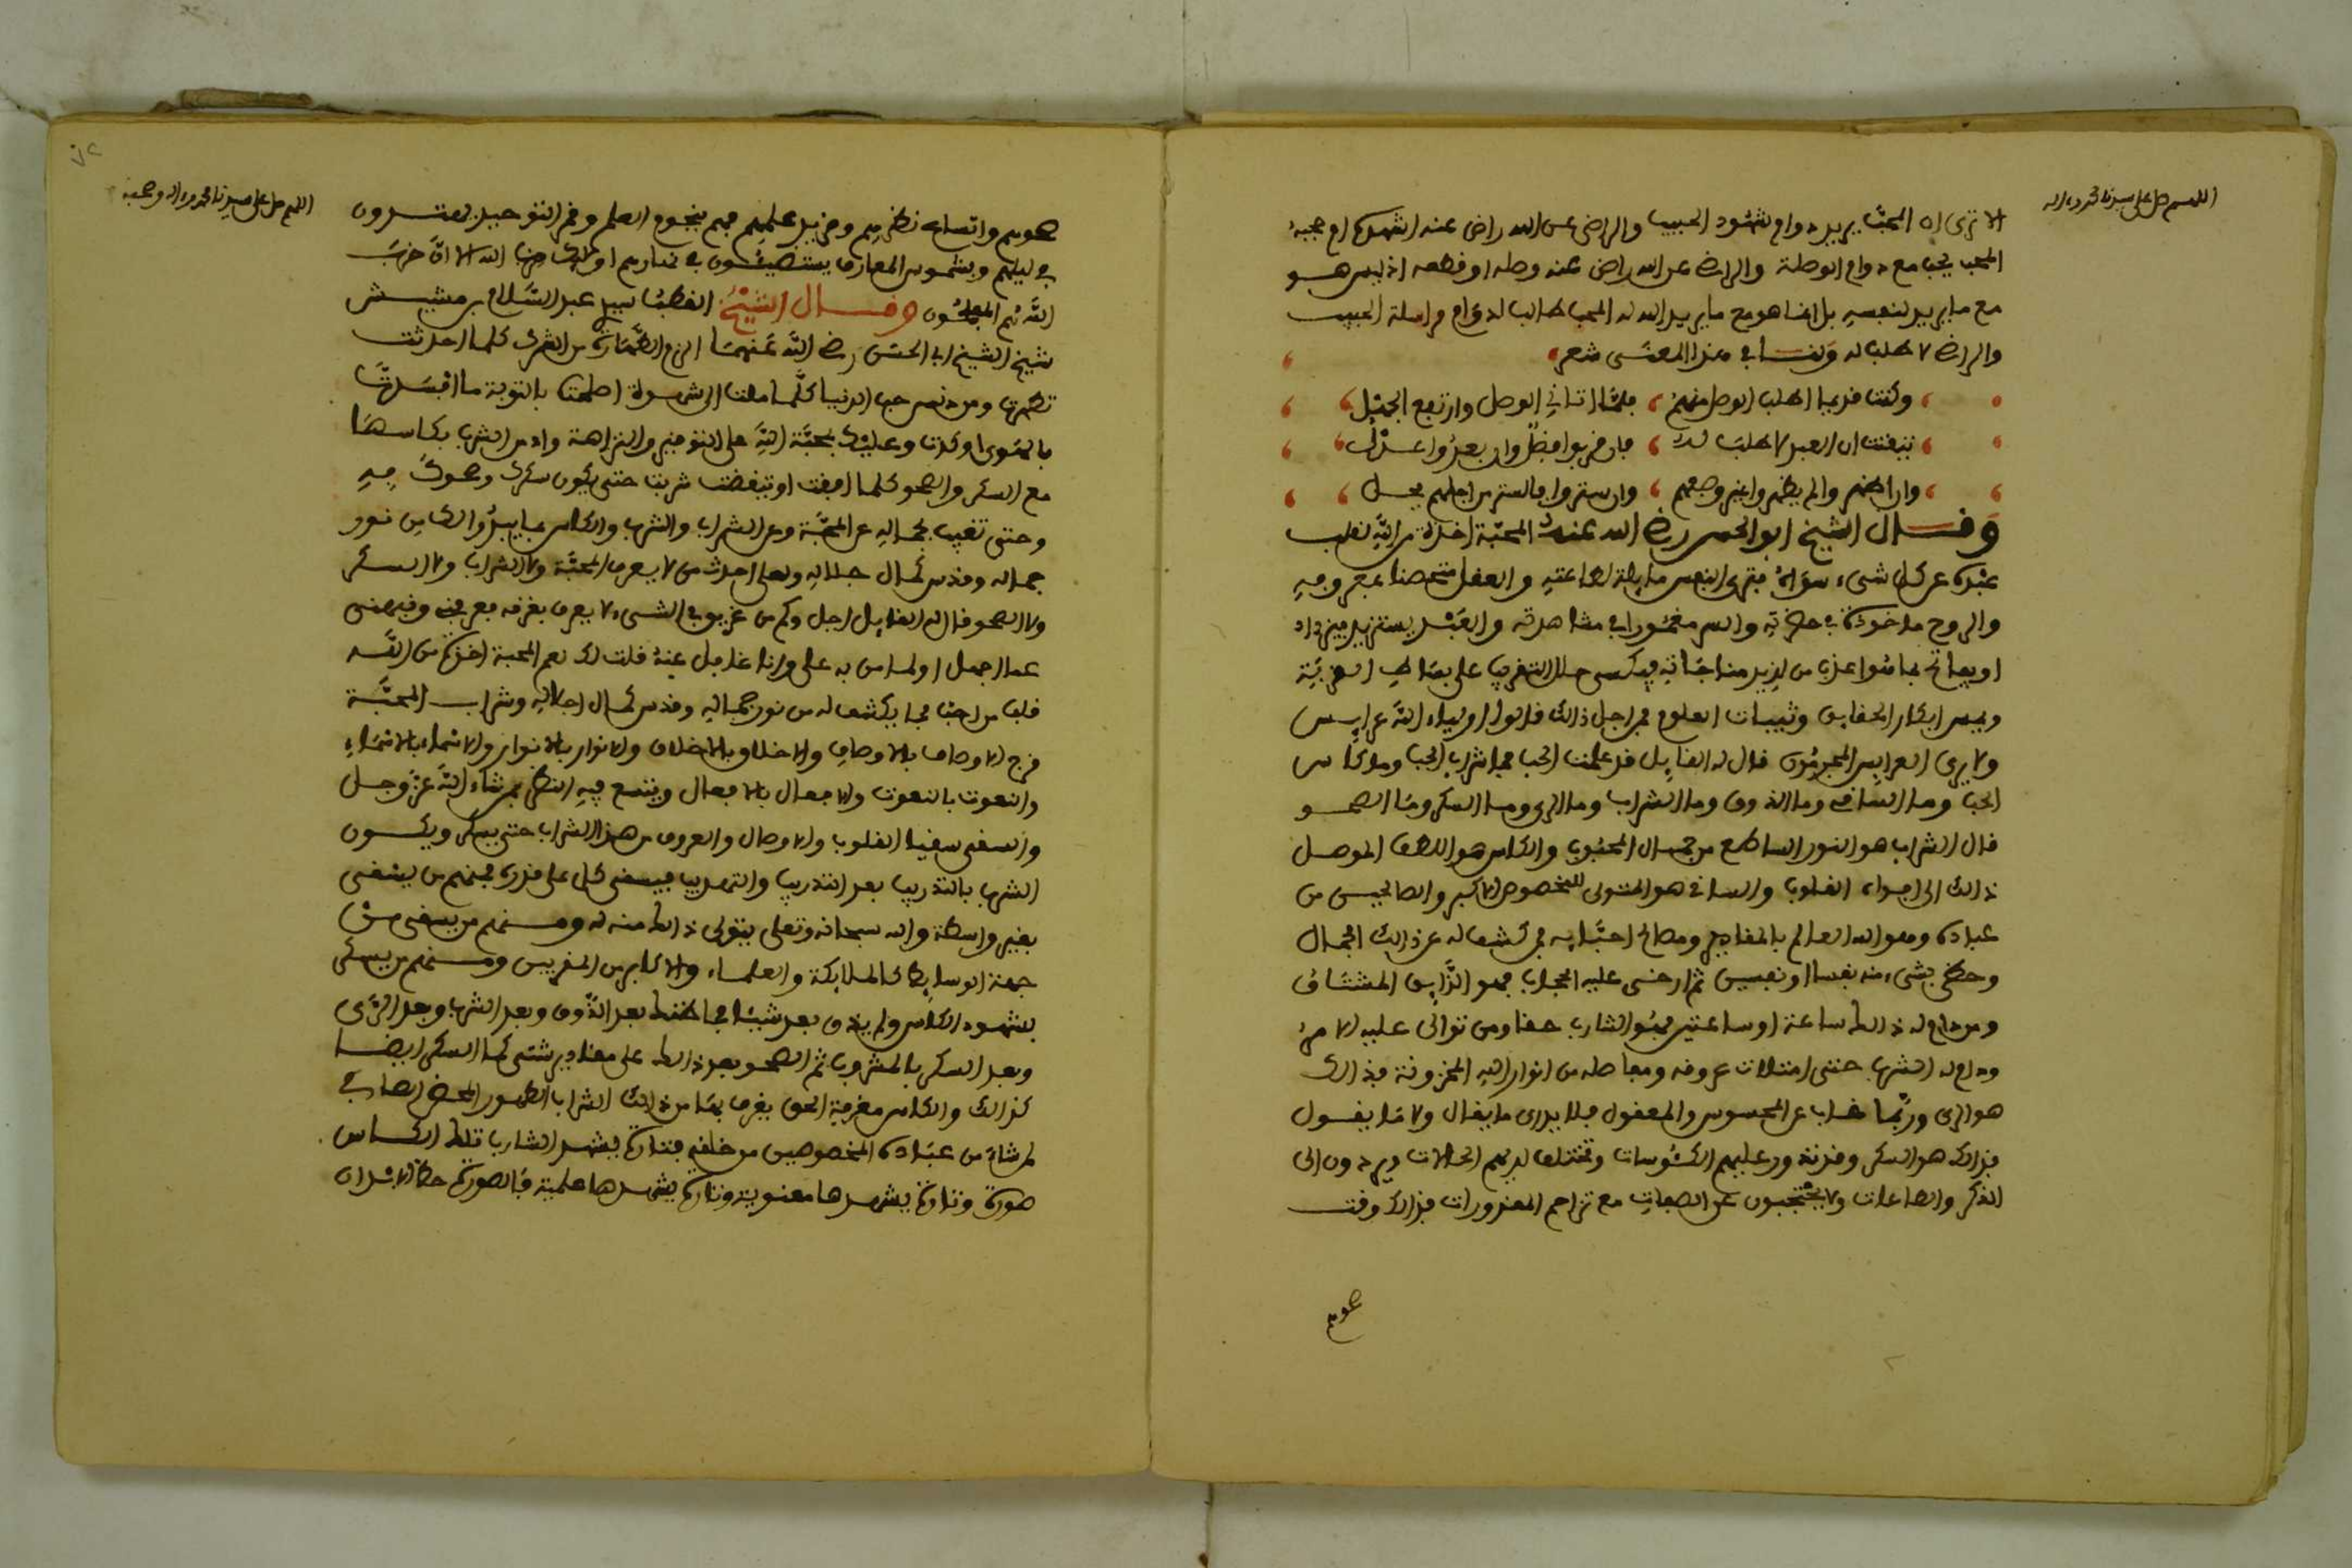 اللهم صل على سيدنا محمد وءاله
الا ترى ان المحب يريد دوام شهود الحبيب والراضى عن الله راض عنه اشهده ام حجبه
المحب يحب مع دوام الوصلة والراضى عن الله راض عنه وصله او قطعه اذ ليس هو
مع ما يريد لنفسه بل انما هو مع ما يريد الله له المحب طالب لدوام مراسلة الحبيب
والراضى لا طلب له ولنا في هذا المعنى شعر
وكنت قديما اطلب الوصل منهم فلما اتانى الوصل وارتفع الجهل
تيقنت ان العبد لا طلب له فان قربوا فضل وان بعدوا عدل
وان اظهروا لم يظهروا غير وصفهم وان ستروا فالستر من اجلهم يحلى
وقال الشيخ ابو الحسن رضى الله عنه المحبة اخذة من الله لقلب
عبده عن كل شىء سواه فترى النفس مايلة لطاعته والعقل متحصنا بمعرفته
والروح ماخوذة في حضرته والسر مغمورا في مشاهدته والعبد يستزيد فيزداد
او يفاتح بما هو اعذب من لذيذ مناجاته فيكسى حلل التقريب على بساط القربة
ويمس ابكار الحقايق وثيبات العلوم فمن اجل ذالك قالوا اولياء الله عرايس
ولا يرى العرايس المجرمون قال له القايل قد علمت الحب فما شراب الحب وما كاس
الحب وما الساقى وما الذوق وما الشراب وما الرى وما السكر وما الصحو
قال الشراب هو النور الساطع من جمال المحبوب والكاس هو اللطف الموصل
ذالك الى افواه القلوب والساقى هو المتولى للخصوص الاكبر والصالحين من
عباده وهو الله العالم بالمقادير ومصالح احبابه فمن كشف له عن ذالك الجمال
وحظى بشىء منه نفسا او نفسين ثم ارخى عليه الحجاب فهو الذايق المشتاق
ومن دام له ذالك ساعة او ساعتين فهو الشارب حقا ومن توالى عليه الامر
ودام له الشرب حتى امتلات عروقه ومفاصله من انوار الله المخزونة فذالك
هو الرى وربما غاب عن المحسوس والمعقول فلا يدرى ما يقال ولا ما يقول
فذالك هو السكر وقد تدور عليهم الكئوسات وتختلف لديهم الحالات ويردون الى
الذكر والطاعات ولا يحتجبون عن الصفات مع تزاحم المقدورات فذالك وقت
صحوهم
اللهم صل على سيدنا محمد وءاله وصحبه
صحوهم واتساع نظرهم ومزيد علمهم فهم بنجوم العلم وقمر التوحيد يهتدون
في ليلهم وبشموس المعارف يستضيئون في نهارهم اولئك حزب الله الا ان حزب
الله هم المفلحون وقال الشيخ القطب سيدى عبد السلام بن مشيش
شيخ الشيخ ابى الحسن رضى الله عنهما الزم الطهارة من الشرك كلما احدثت
تطهرت ومن دنس حب الدنيا كلما ملت الى شهوة اصلحت بالتوبة ما افسدت
بالهوى او كدت وعليك بمحبة الله على التوقير والنزاهة وادمن الشرب بكاسها
مع السكر والصحو كلما افقت او تيقظت شربت حتى يكون سكرك وصحوك به
وحتى تغيب بجماله عن المحبة وعن الشراب والشرب والكاس بما يبدو لك من نور
جماله وقدس كمال جلاله ولعلى احدث من لا يعرف المحبة ولا الشراب ولا السكر
ولا الصحو قال له القايل اجل وكم من غريق في الشىء لا يعرف بغرقه فعرفنى ونبهنى
عما اجهل او لما من به على وانا غافل عنه قلت لك نعم المحبة اخذة من الله
قلب من احب بما يكشف له من نور جماله وقدس كمال اجلاله وشراب المحبة
مزج الاوصاف بالاوصاف والاخلاق بالاخلاق والانوار بالانوار والاسماء بالاسماء
والنعوت بالنعوت والافعال بالافعال ويتسع فيه النظر لمن شاء الله عز وجل
والسقى سقيا القلوب والاوصال والعروق من هذا الشراب حتى يسكر ويكون
الشرب بالتدريب بعد التدريب والتهذيب فيسقى كل على قدره فمنهم من يسقى
بغير واسطة والله سبحانه وتعلى يتولى ذالك منه له ومنهم من يسقى من
جهة الوسايط كالملايكة والعلماء والاكابر من المقربين ومنهم من يسكر
بشهود الكاس ولم يذق بعد شيئا فما ظنك بعد الذوق وبعد الشرب وبعد الرى
وبعد السكر بالمشروب ثم الصحو بعد ذالك على مقادير شتى كما السكر ايضا
كذالك والكاس معرفة الحق يغرف بها من ذالك الشراب الطهور المحض الصافى
لمن شاء من عباده المخصوصين من خلقه فتارة يشهد الشارب تلك الكاس
صورة وتارة يشهدها معنوية وتارة يشهدها علمية فالصورة حظ الابدان